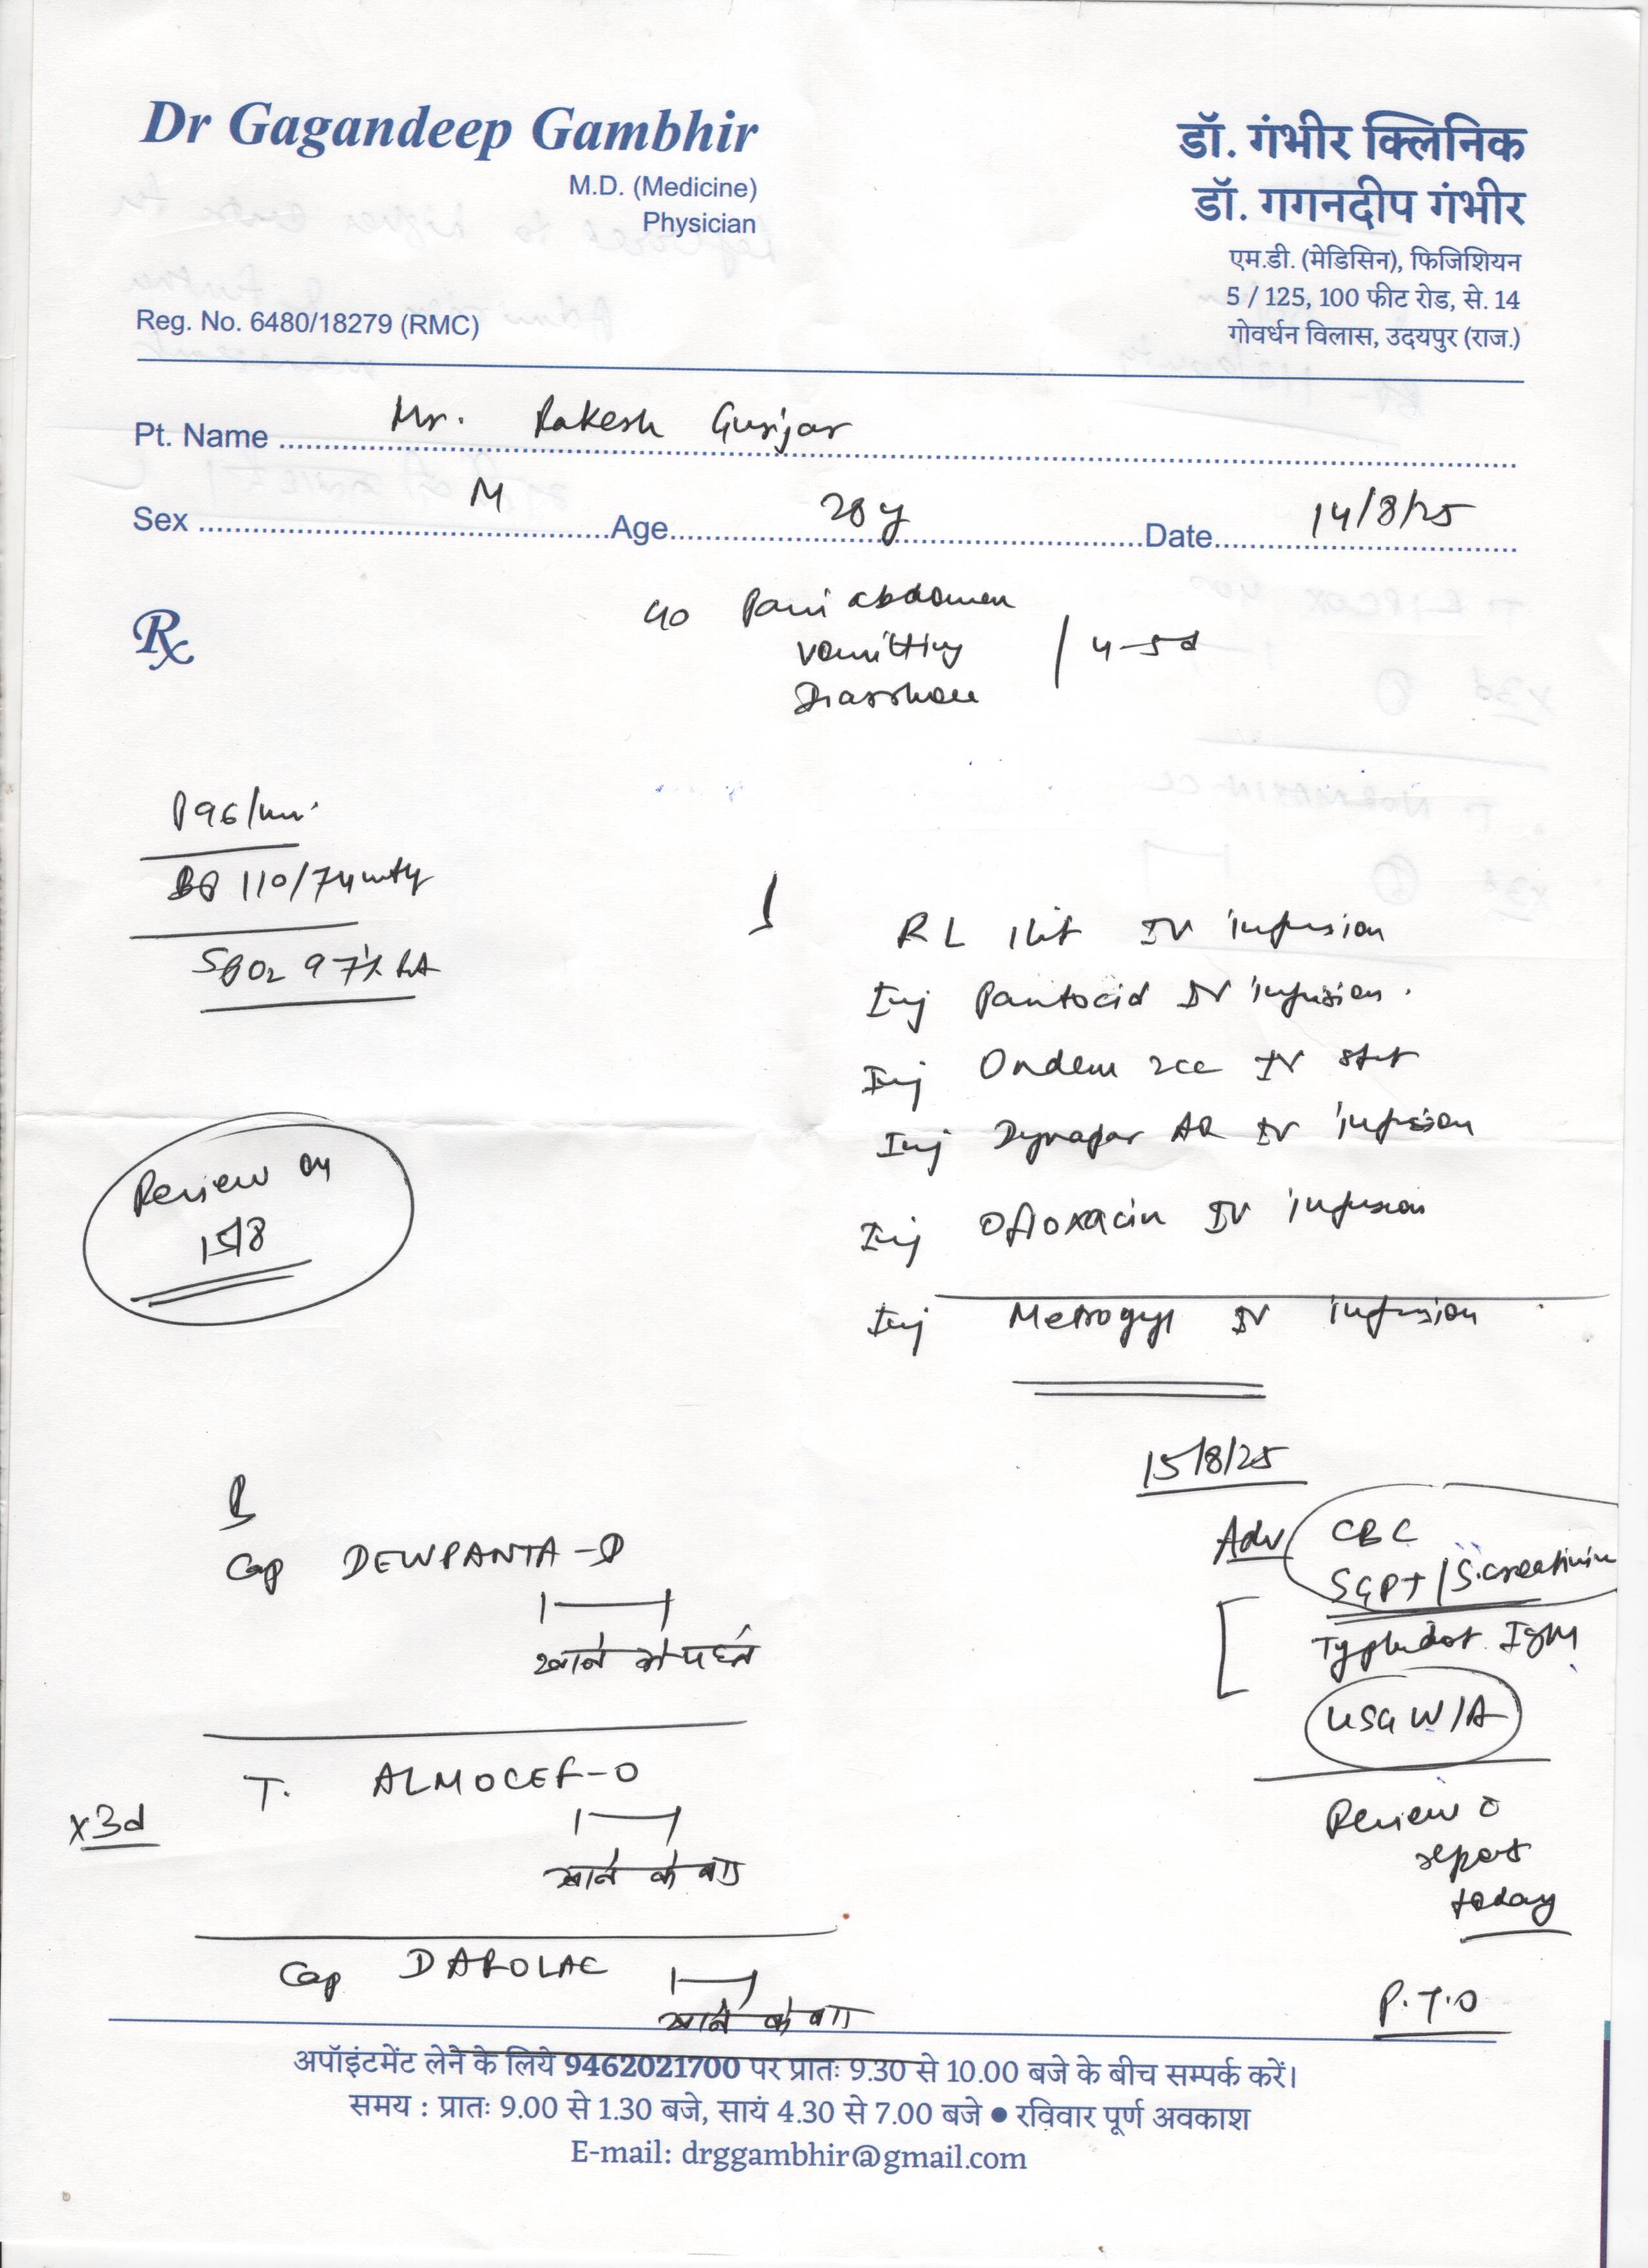 Dr Gagandeep Gambhir
M.D. (Medicine)
Physician
Reg. No. 6480/18279 (RMC)
डॉ. गंभीर क्लिनिक
डॉ. गगनदीप गंभीर
एम.डी. (मेडिसिन), फिजिशियन
5 / 125, 100 फीट रोड, से. 14
गोवर्धन विलास, उदयपुर (राज.)
Pt. Name Mr. Rakesh Gurjar
Sex M Age 28y Date 14/8/25
Rx
c/o Pain abdomen
vomitting / 4-5d
Diarrhoea
P 96/min
BP 110/74 mmHg
SPO2 97% RA
RL 1 lit IV infusion
Inj Pantocid IV infusion.
Inj Ondem 2cc IV stat
Inj Dynapar AQ IV infusion
Inj Ofloxacin IV infusion
Inj Metrogyl IV infusion
Review on
15/8
15/8/25
Adv CBC
SGPT / S.creatinin
Typhidot IgM
USG W/A
Review c̄
report
today
P.T.O
Cap DEWPANTA-D
1—1
खाने से पहले
T. ALMOCEF-O
1—1
x3d
खाने के बाद
Cap DAROLAC 1—1
खाने के बाद
अपॉइंटमेंट लेने के लिये 9462021700 पर प्रातः 9.30 से 10.00 बजे के बीच सम्पर्क करें।
समय : प्रातः 9.00 से 1.30 बजे, सायं 4.30 से 7.00 बजे ● रविवार पूर्ण अवकाश
E-mail: drggambhir@gmail.com